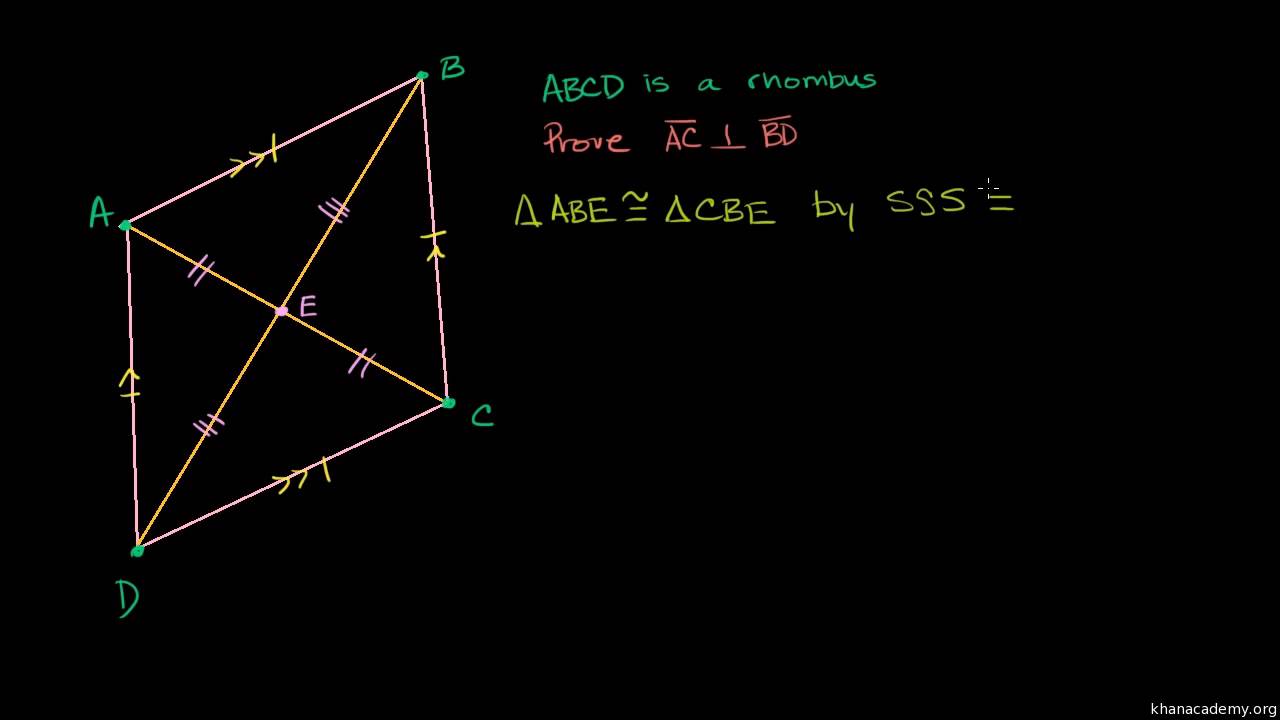 B
ABCD is a rhombus
Prove AC ⊥ BD
A
△ABE ≅ △CBE by SSS ≅
E
C
D
khanacademy.org